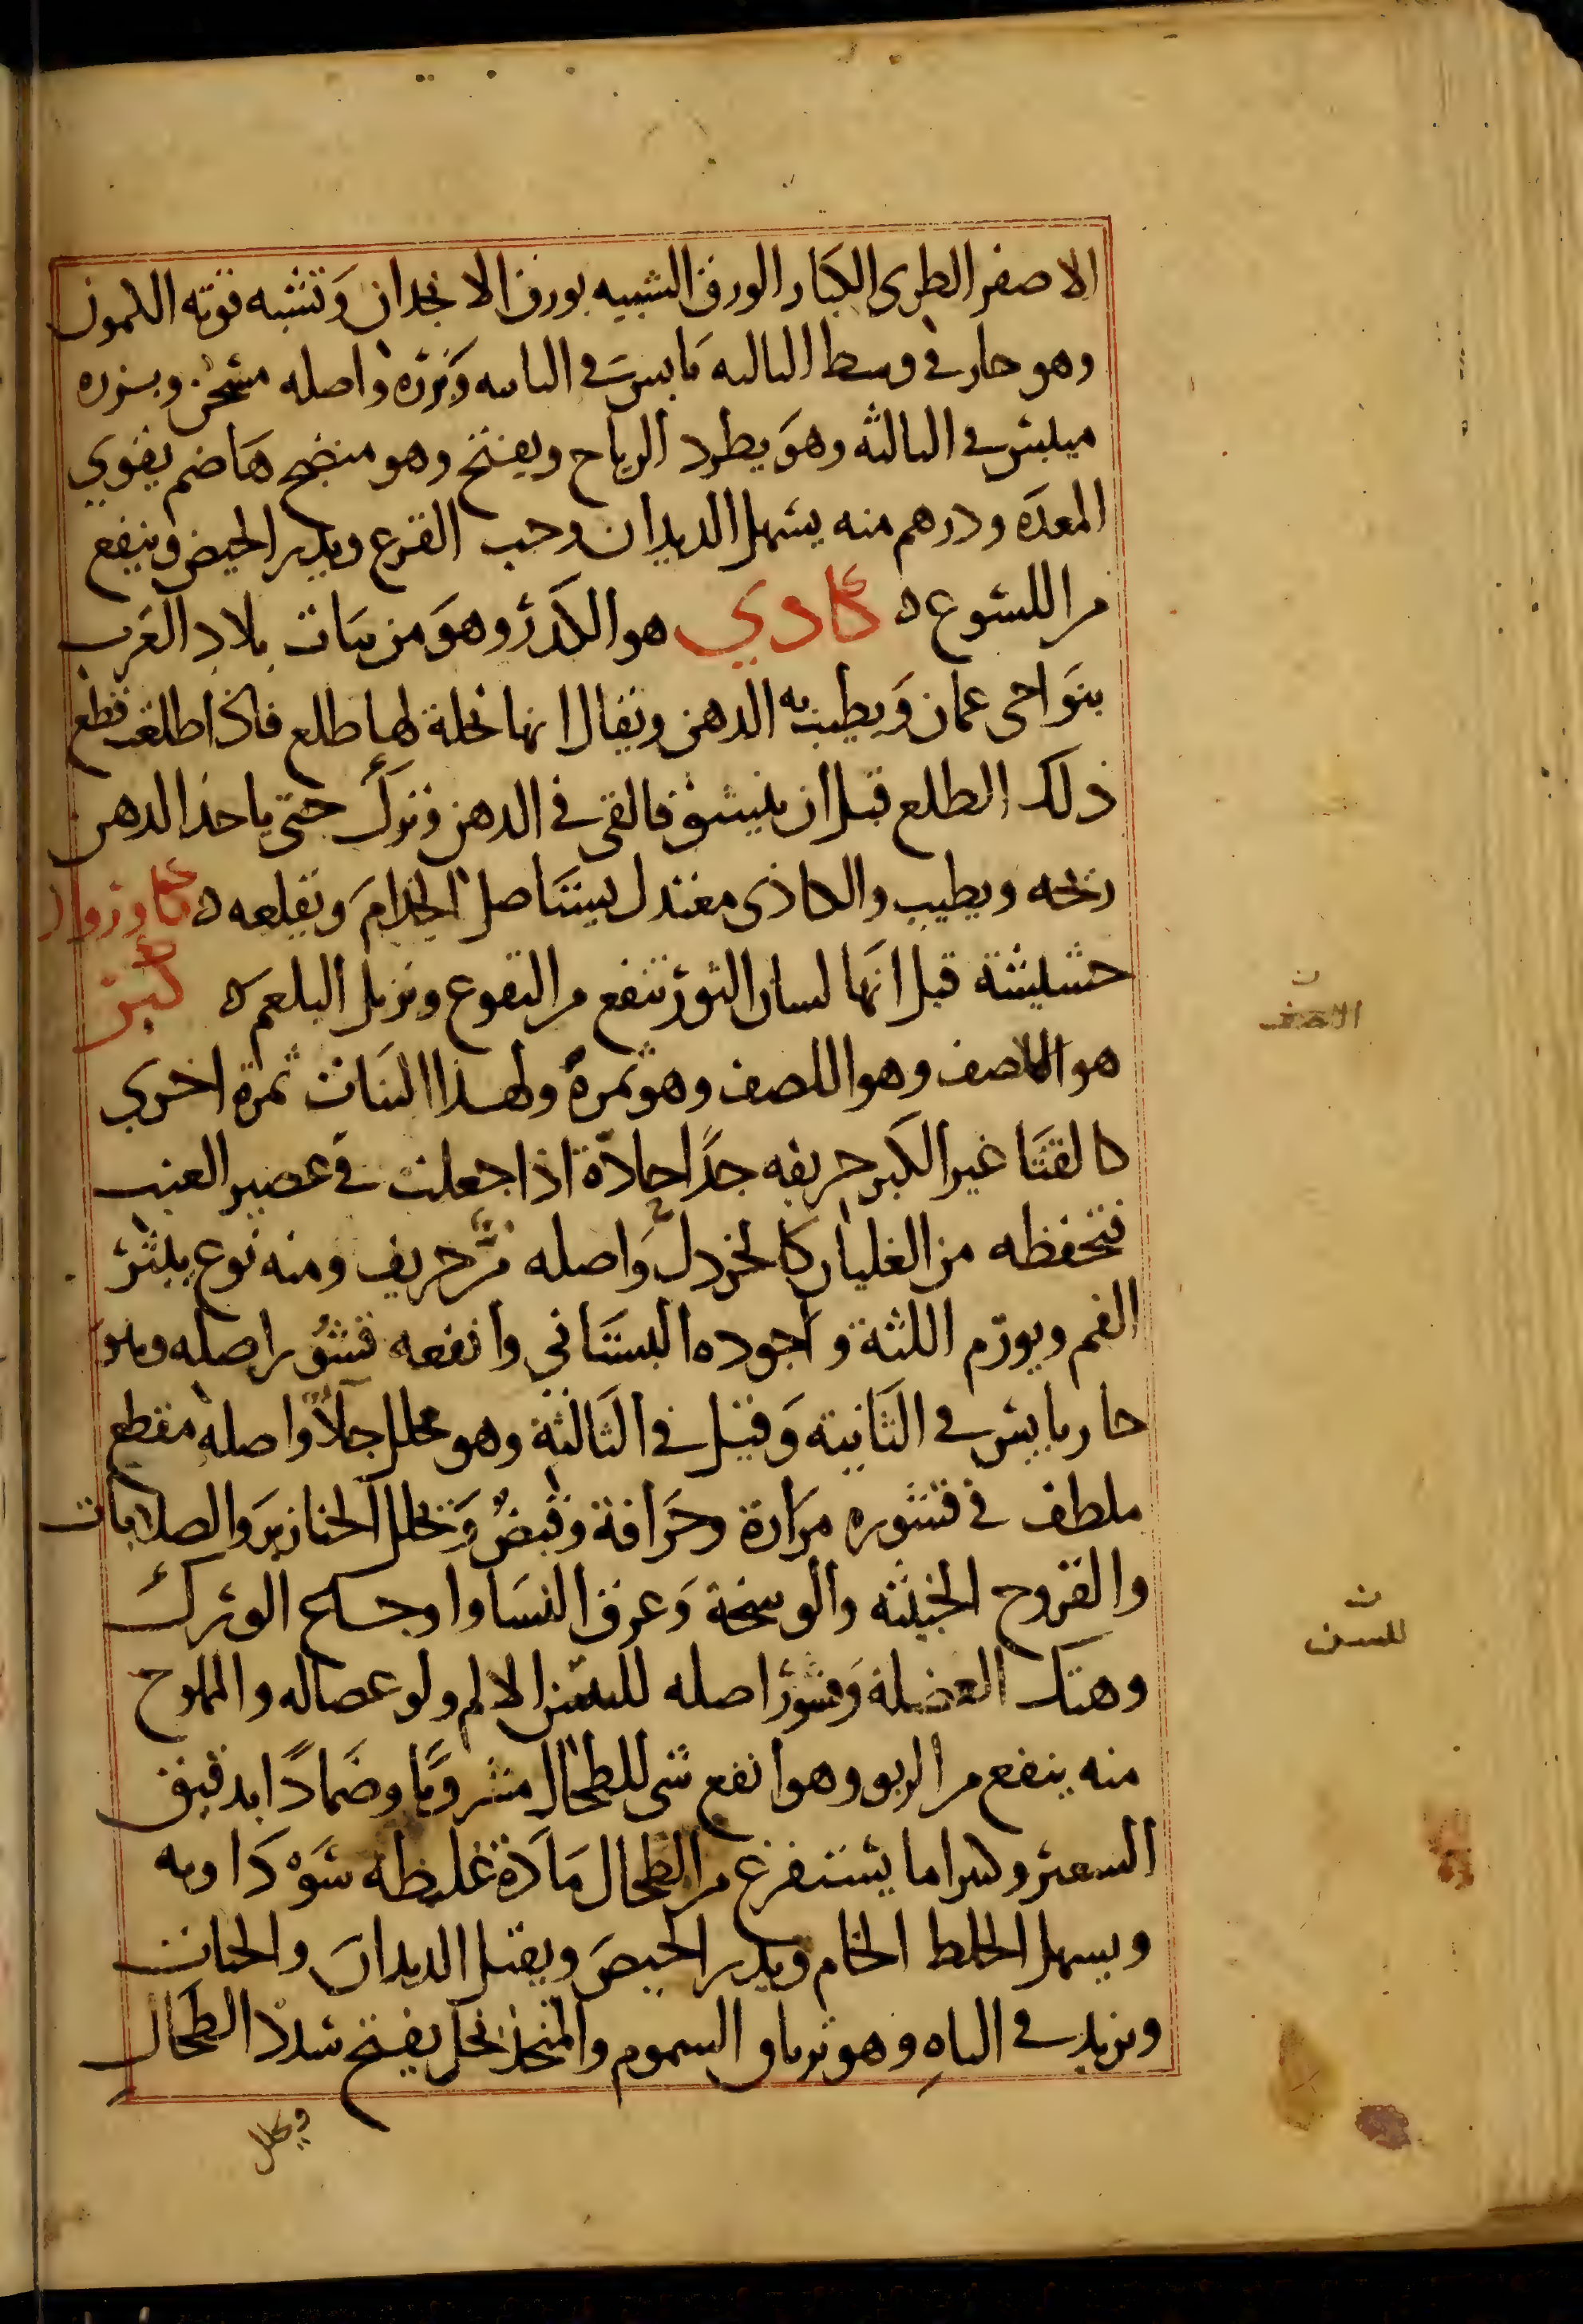 الاصفر الطرى الكبار الورق الشبيه بورق الانجدان وتشبه قوته الكمون
وهو حار في وسط الثالثه يابس في الثانيه وبزره واصله مسخن وبزره
ميبس في الثالثه وهو يطرد الرياح ويفتح وهو منضج هاضم يقوي
المعده ودرهم منه يسهل الديدان وحب القرع ويدر الحيض وينفع
من اللسوع ه كادي هو الكدر وهو من نبات بلاد العرب
بنواحى عمان ويطيب به الدهن ويقال انها نخلة لها طلع فاذا اطلعت قطع
ذلك الطلع قبل ان ينشق فالقى في الدهن وترك حتى ياخذ الدهن
ريحه ويطيب والكاذى معتدل يستاصل الجذام ويقلعه ه كاوزوان
حشيشة قيل انها لسان الثور تنفع من القوع وتزيل البلغم ه كبر
هو الاصف وهو اللصف وهو ثمرة ولهذا النبات ثمرة اخري
كالقثا غير الكبر حريفه جدا حادة اذا جعلت في عصير العنب
فتحفظه من الغليان كالخردل واصله مر حريف ومنه نوع يبثر
الفم ويورم اللثة واجوده البستاني وانفعه قشور اصله وهو
حار يابس في الثانية وقيل في الثالثة وهو محلل جلا واصله مقطع
ملطف في قشوره مرارة وحرافة وقبض وتحلل الخنازير والصلابات
والقروح الخبيثه والوسخة وعرق النسا واوجاع الورك
وهتك العضلة وقشور اصله للسن الالم ولوعصاله والمملوح
منه ينفع من الربو وهو انفع شى للطحال مشروبا وضمادا بدقيق
الشعير وكثيرا ما يستفرغ من الطحال مادة غليظه سوداويه
ويسهل الخلط الخام ويدر الحيض ويقتل الديدان والحيات
ويزيد في الباه وهو ترياق السموم والمتخذ بخل يفتح سدد الطحال
ويحلل
ن
الاصف
ن
للسن